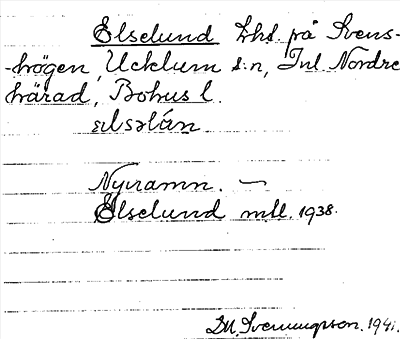 Elselund lht. på Svens-
-högen, Ucklum s:n, Inl. Nordre
härad, Bohusl.
ɛlsəlán
Nyinamn. —
Elselund mtl. 1938.
D.M. Svenungsson. 1941.